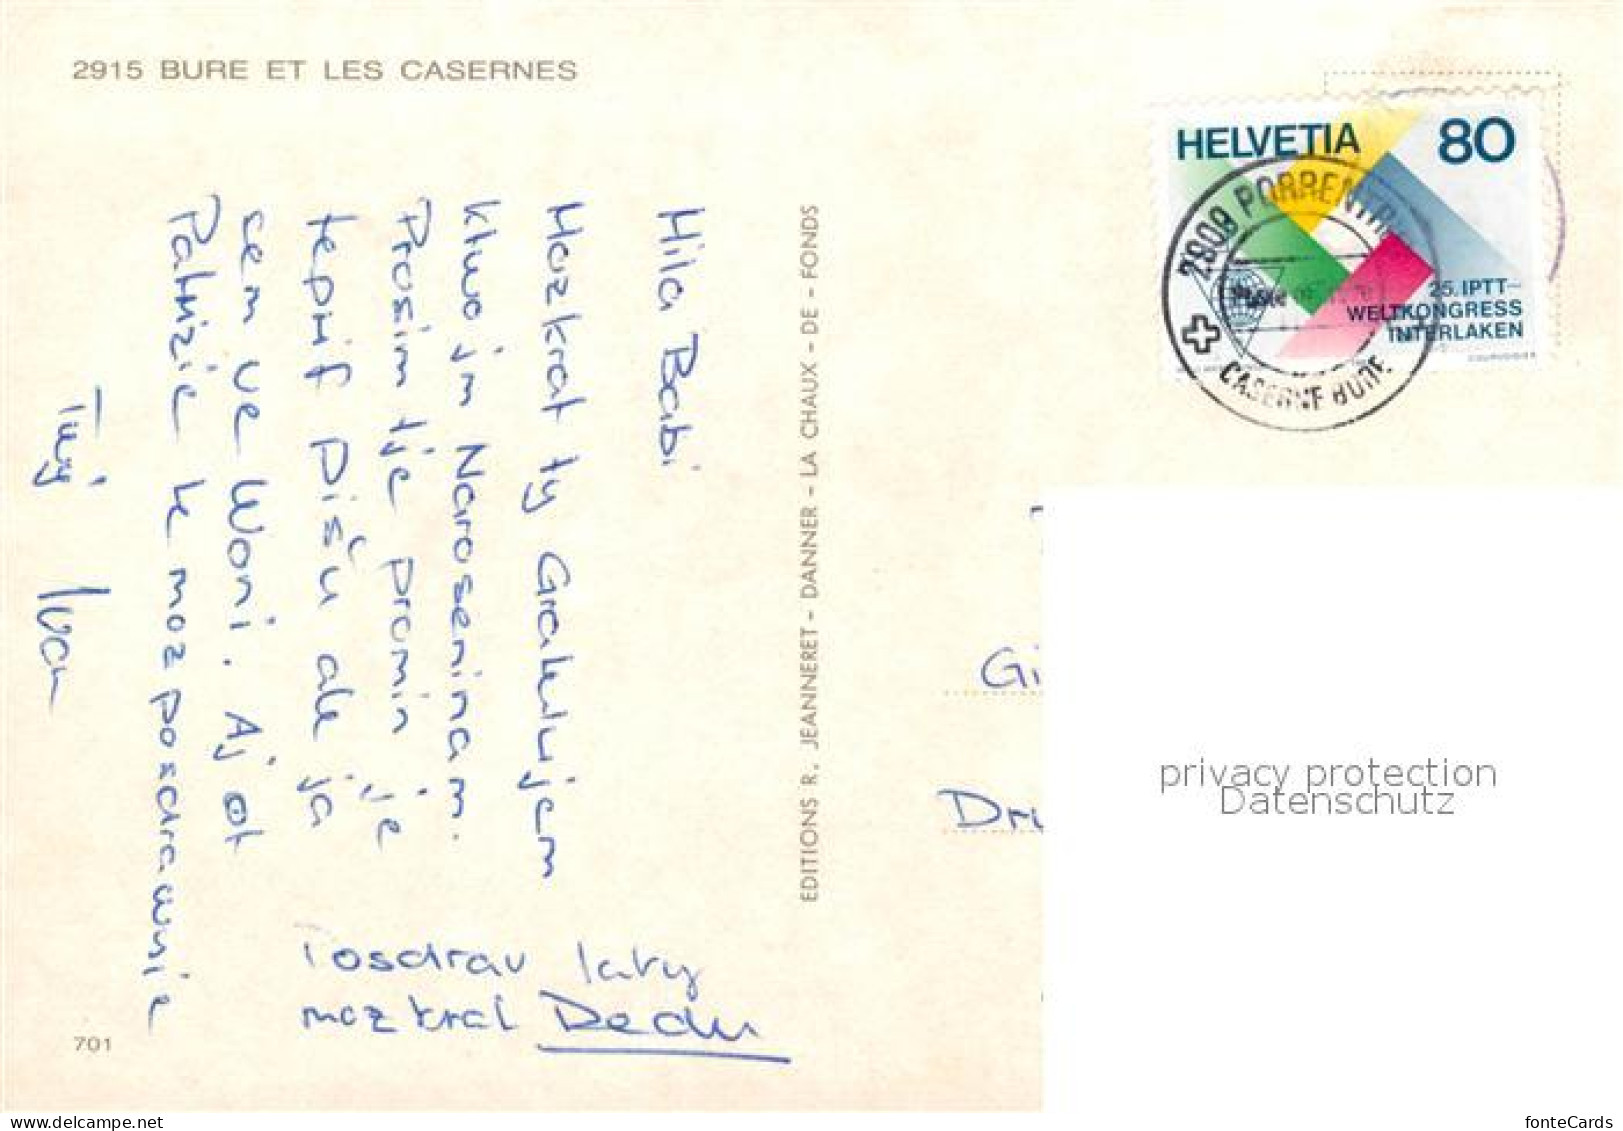 2915 BURE ET LES CASERNES
HELVETIA 80
25. IPTT-
WELTKONGRESS
INTERLAKEN
COURVOISIER
2909 PORRENTRUY
CASERNE BURE
Mila Babi
Mozkrat ty Gratulujem
Ktwojm Naroseninam.
Prosim tje promin je
tepnif Pišu ale ja
sem ve Woni. Aj ot
Patrizie te moz posdrawnie
Twuj Ivan
Posdrav taky
mozkrat Dedu
EDITIONS R. JEANNERET - DANNER - LA CHAUX - DE - FONDS
Gi
Dru
privacy protection
Datenschutz
701
www.delcampe.net
fonteCards